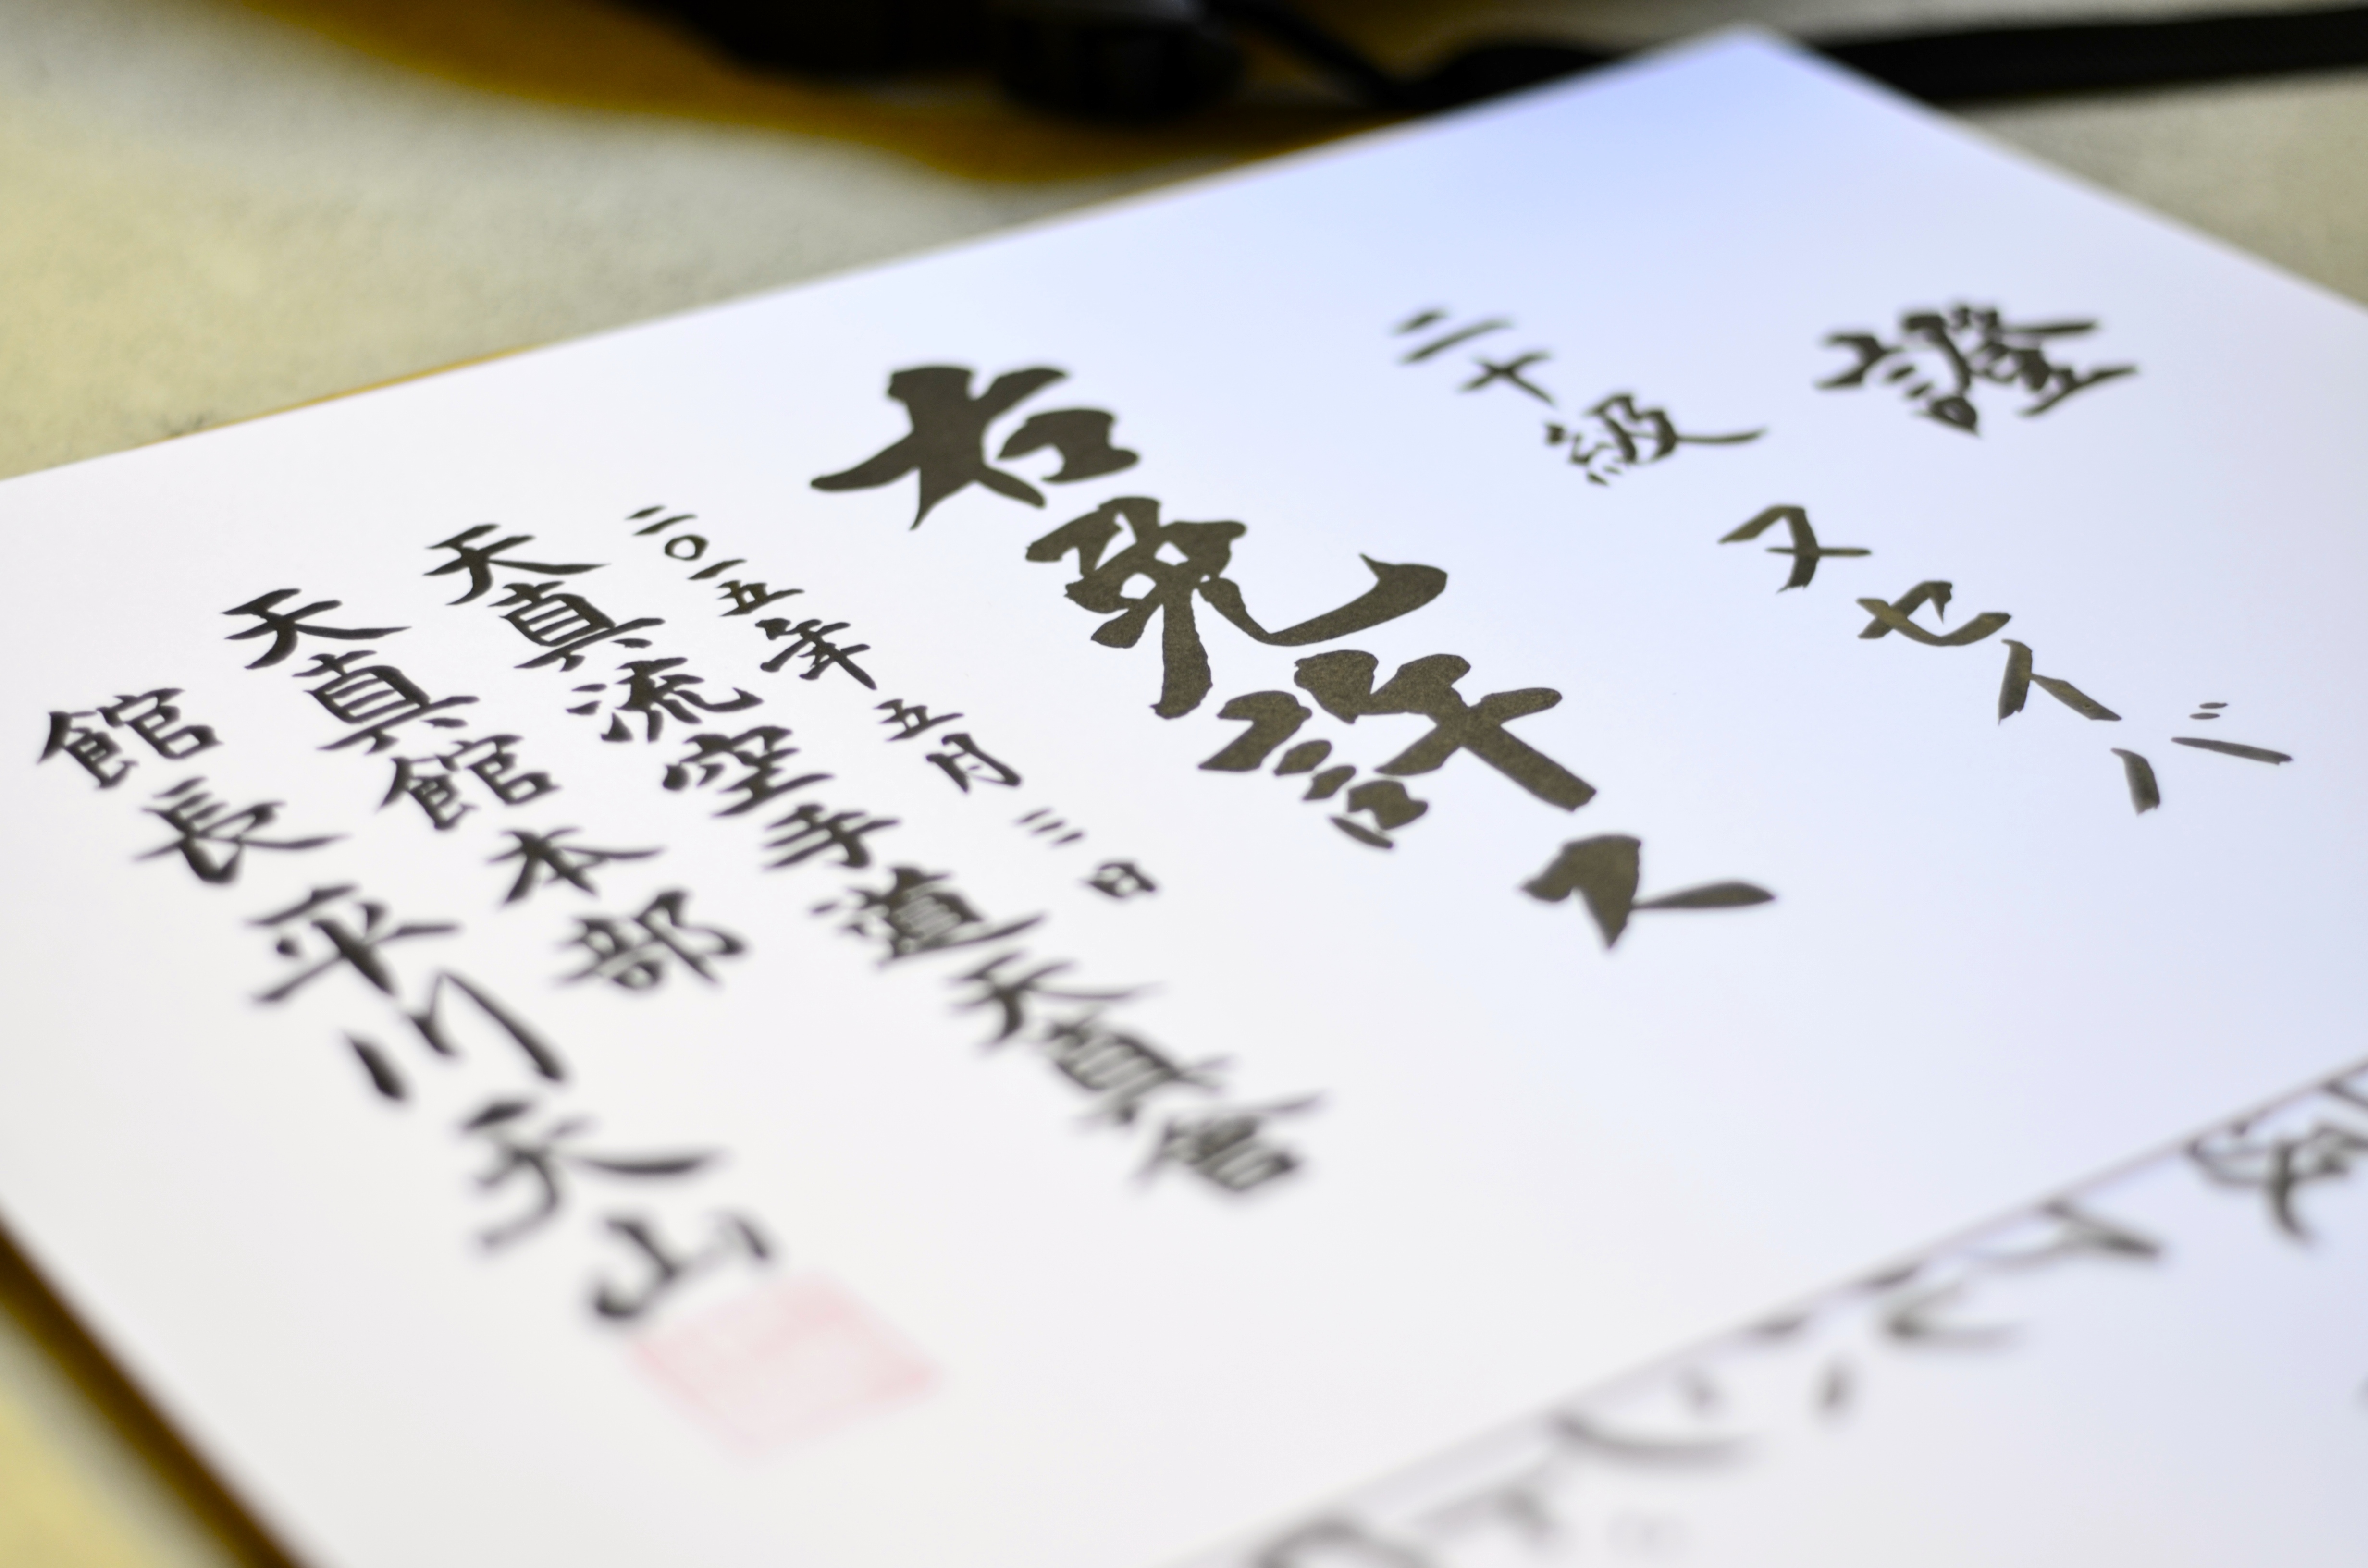 證
二十級 ヌセイバ
右免許ス
二〇一五年 五月 三日
天真流空手道天真館
天真館本部
館長 平川天山